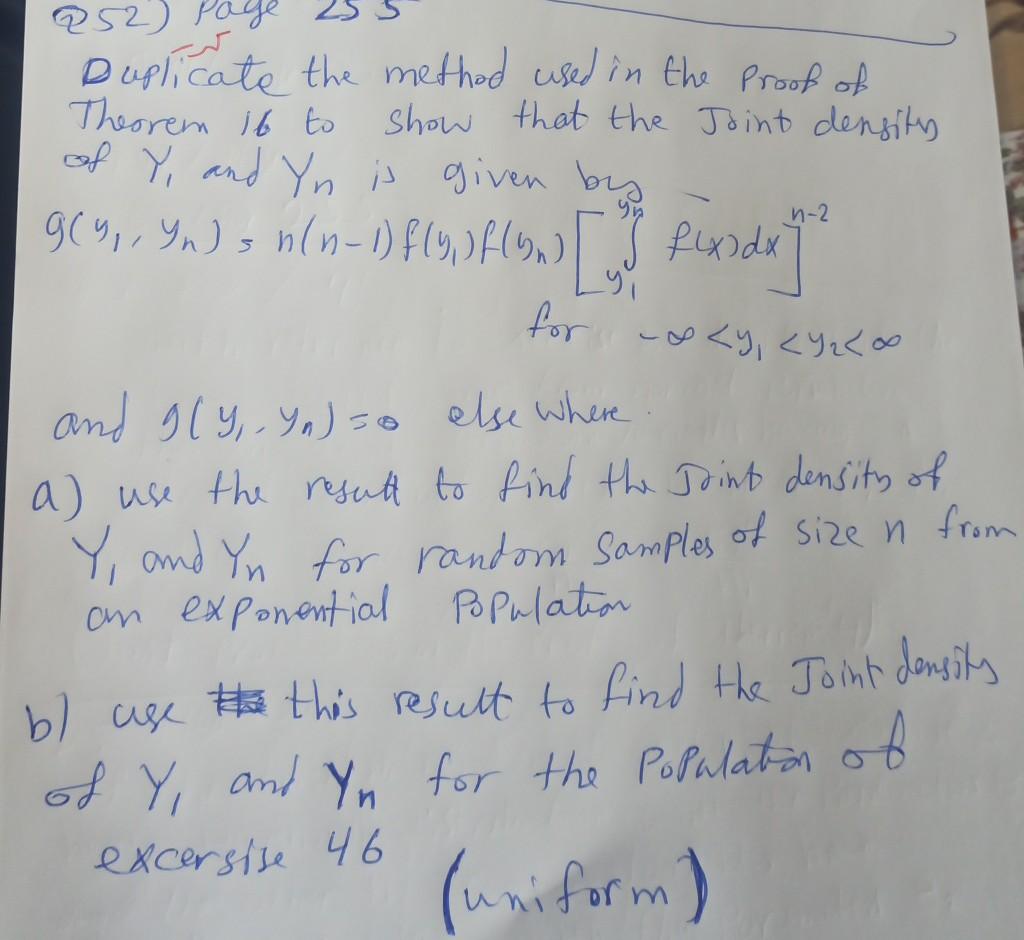 Q52) Page 255
Duplicate the method used in the proof of
Theorem 16 to show that the Joint density
of Y₁ and Yn is given by
g(y₁, yn) = n(n-1) f(y₁) f(yn) [∫_{y₁}^{yn} f(x) dx]^{n-2}
for -∞ < y₁ < y₂ < ∞
and g(y₁, yn) = 0 else where.
a) use the result to find the Joint density of
Y₁ and Yn for random samples of size n from
an exponential Population
b) use this result to find the Joint density
of Y₁ and Yn for the Population of
excersise 46
(uniform)